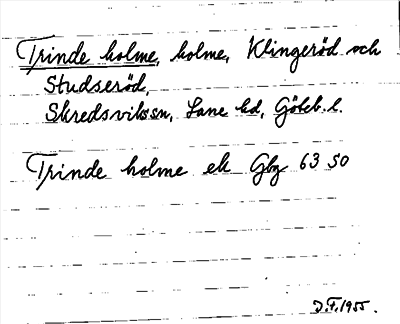 Trinde holme, holme, Klingeröd och
Studseröd,
Skredsviks sn, Lane hd, Göteb. l.
Trinde holme ek Gbg 63 SO
J.F. 1955.